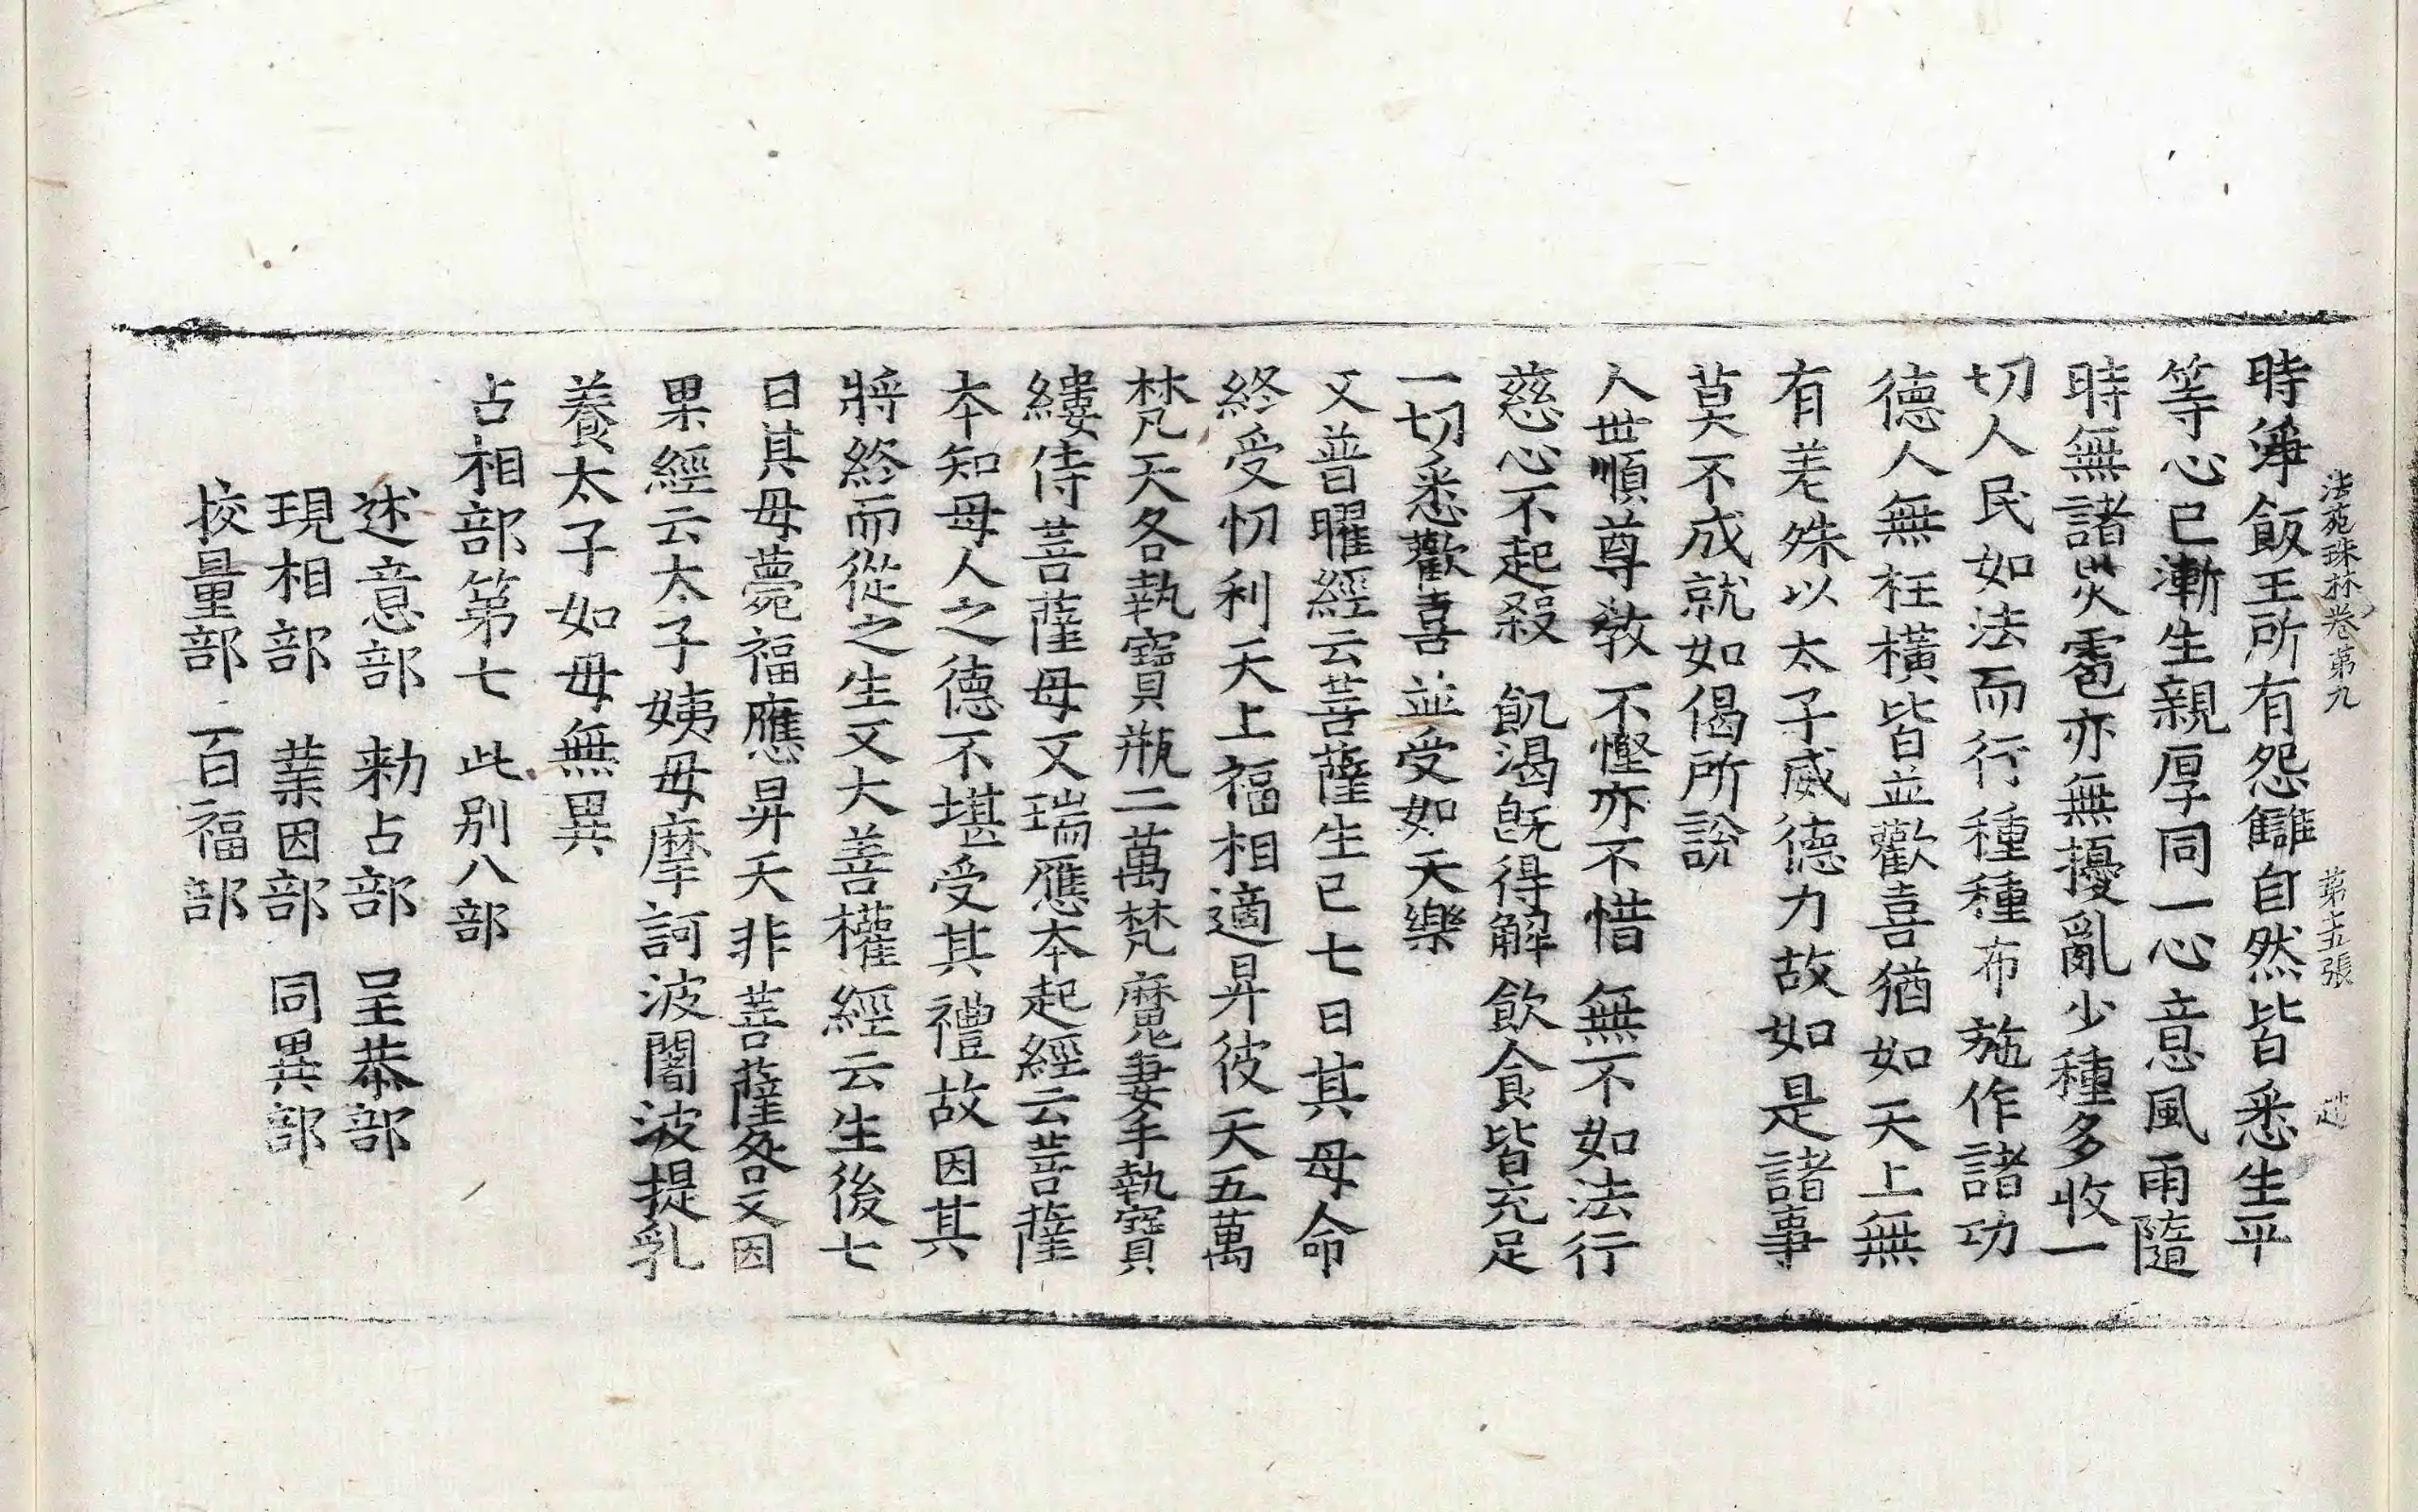 法苑珠林卷第九 第十五張 趙
時淨飯王所有怨讎自然皆悉生平
等心已漸生親厚同一心意風雨隨
時無諸災雹亦無擾亂少種多收一
切人民如法而行種種布施作諸功
德人無枉橫皆並歡喜猶如天上無
有差殊以太子威德力故如是諸事
莫不成就如偈所說
人世順尊敎 不慳亦不惜 無不如法行
慈心不起殺 飢渴旣得解 飮食皆充足
一切悉歡喜 並受如天樂
又普曜經云菩薩生已七日其母命
終受忉利天上福相適昇彼天五萬
梵天各執寶瓶二萬梵魔妻手執寶
縷侍菩薩母又瑞應本起經云菩薩
本知母人之德不堪受其禮故因其
將終而從之生又大善權經云生後七
日其母薨福應昇天非菩薩咎又因
果經云太子姨母摩訶波闍波提乳
養太子如母無異
占相部第七 此別八部
述意部 勑占部 呈恭部
現相部 業因部 同異部
挍量部 百福部